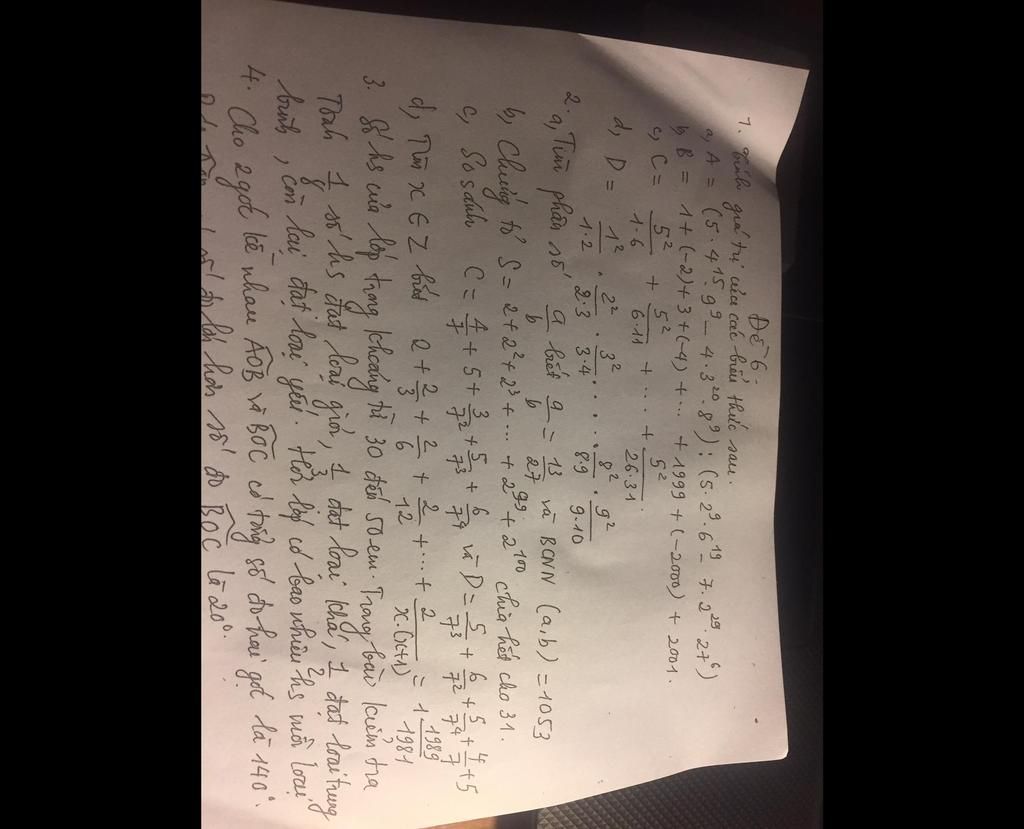 Đề 6.
1. Tính giá trị của các biểu thức sau.
a, A = (5.4¹⁵.9⁹ - 4.3²⁰.8⁹) : (5.2⁹.6¹⁹ - 7.2²⁹.27⁶)
b, B = 1 + (-2) + 3 + (-4) + ... + 1999 + (-2000) + 2001.
c, C = 5²/1.6 + 5²/6.11 + ... + 5²/26.31.
d, D = 1²/1.2 . 2²/2.3 . 3²/3.4 ..... 8²/8.9 . 9²/9.10
2. a, Tìm phân số a/b biết a/b = 13/27 và BCNN (a,b) = 1053
b, Chứng tỏ S = 2 + 2² + 2³ + ... + 2⁹⁹ + 2¹⁰⁰ chia hết cho 31.
c, So sánh C = 4/7 + 5 + 3/7² + 5/7³ + 6/7⁴ và D = 5/7³ + 6/7² + 5/7⁴ + 4/7 + 5
d, Tìm x ∈ Z biết 2 + 2/3 + 2/6 + 2/12 + ... + 2/x.(x+1) = 1 1989/1981
3. Số hs của lớp trong khoảng từ 30 đến 50 em. Trong bài kiểm tra
Toán 1/8 số hs đạt loại giỏi, 1/3 đạt loại khá, 1/2 đạt loại trung
bình, còn lại đạt loại yếu. Hỏi lớp có bao nhiêu hs mỗi loại
4. Cho 2 góc kề nhau AOB và BOC có tổng số đo hai góc là 140°.
số đo BOC là 20°.